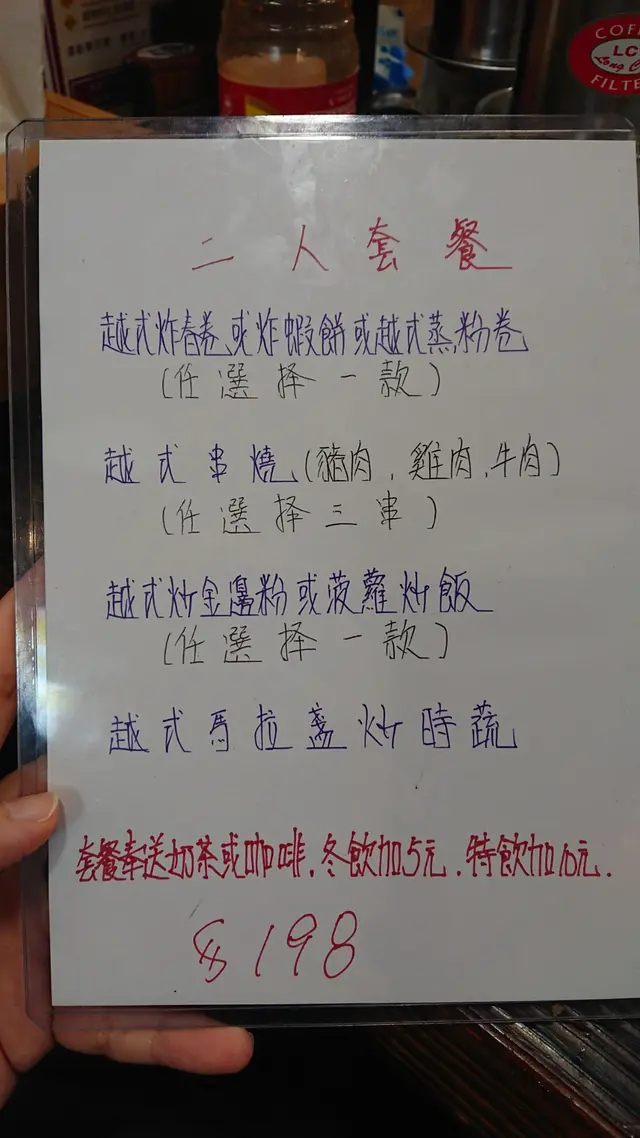 COFFEE
LC
Long C
FILTE
二人套餐
越式炸春卷或炸蝦餅或越式蒸粉卷
(任選择一款)
越式串燒(豬肉,雞肉,牛肉)
(任選择三串)
越式炒金邊粉或菠蘿炒飯
(任選择一款)
越式馬拉盞炒時蔬
套餐奉送奶茶或咖啡,冬飲加5元.特飲加10元.
$198